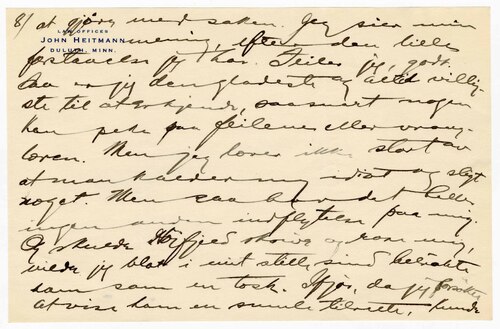 8/ at gjøre med saken. Jeg sier min
LAW OFFICES
JOHN HEITMANN
DULUTH, MINN.
mening, efter den lille
forstaaelse jeg har. Feiler jeg, godt.
Saa er jeg den gladeste og altid villig-
ste til at erkjende, saasnart nogen
kan peke paa feilene eller vrang-
læren. Men jeg hører ikke stort av
at man kalder mig idiot og sligt
noget. Men saa har det heller
ingen anden indflytelse paa mig.
Og skulde show og rose mig,
vilde jeg blot i mit stille sind betrakte
ham som en tosk. Ifjor, da jeg forsøkte
at vise ham en smule tilrette, kunde